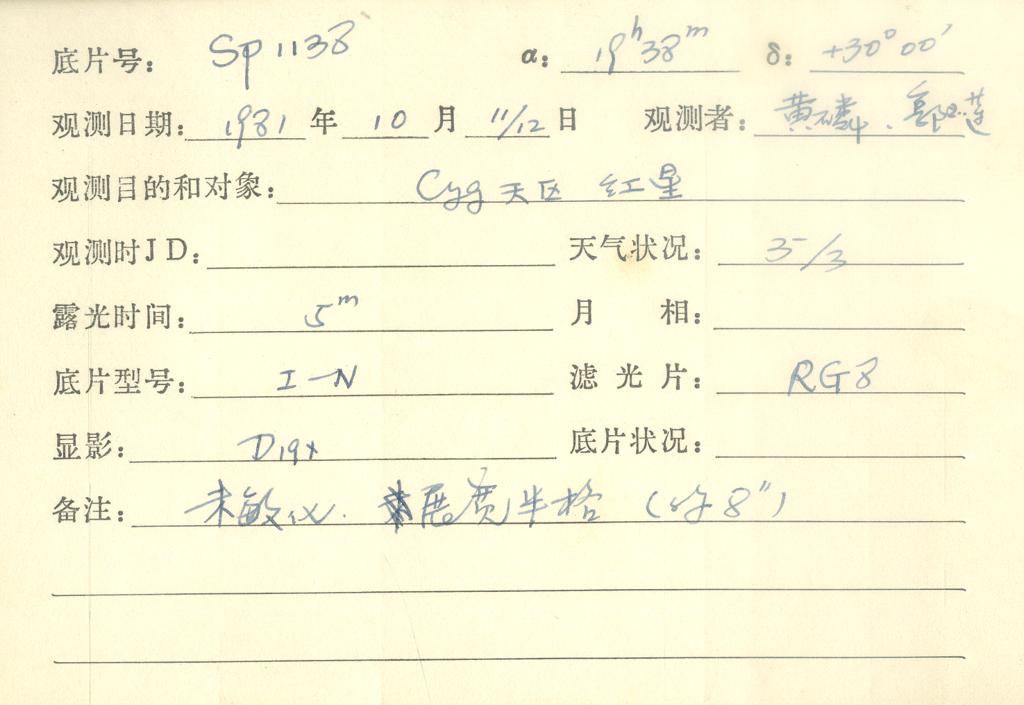 底片号: Sp1138 α: 19ʰ38ᵐ δ: +30°00′
观测日期: 1981 年 10 月 11/12 日 观测者: 黄磷、郭
观测目的和对象: Cyg天区 红星
观测时JD: 天气状况: 3-/3
露光时间: 5ᵐ 月 相:
底片型号: I-N 滤光片: RG8
显影: D19 底片状况:
备注: 未敏化. 展宽半格 (约8″)